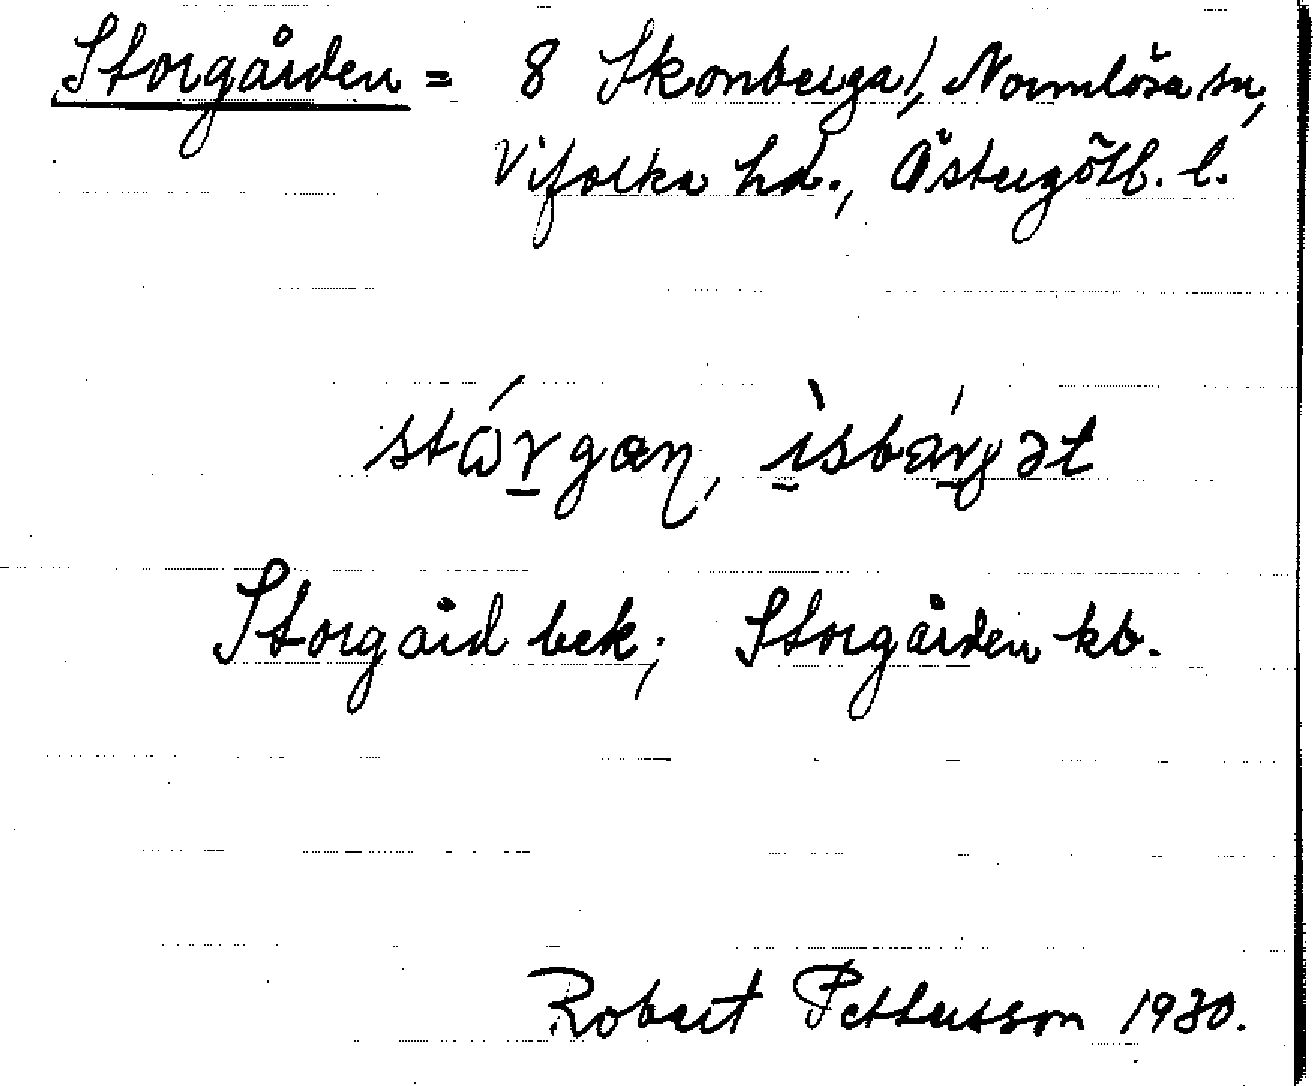 Storgården = 8 Skonberga, Normlösa sn,
Vifolka hd., Östergötl. l.
stɷ́rgaɳ, ìsbárgət
Storgård bek; Storgården kb.
Robert Pettersson 1930.